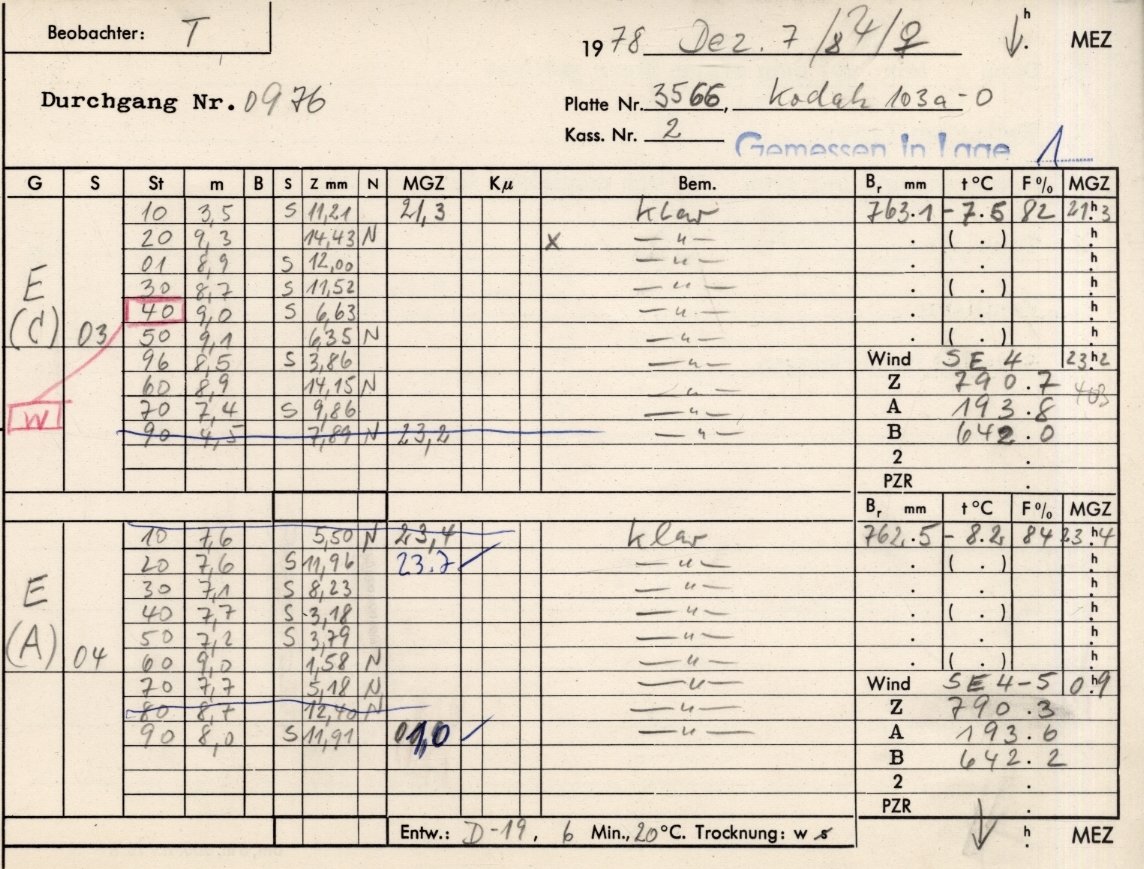 Beobachter: T
1978 Dez. 7 /8 4/♀ ↓ h . MEZ
Durchgang Nr. 0976
Platte Nr. 3566, Kodak 103a-O
Kass. Nr. 2
Gemessen in Lage 1
G S St m B S Z mm N MGZ Kμ Bem. Br mm t°C F% MGZ
10 3,5 S 11,21 21,3 klar 763.1 -7.5 82 21h3
20 9,3 14,43 N x —"— . ( . ) h
01 8,9 S 12,00 —"— . . h
30 8,7 S 11,52 —"— . ( . ) h
40 9,0 S 6,63 —"— . . h
E (C) 03 50 9,1 6,35 N —"— . ( . ) h
96 8,5 S 3,86 —"— Wind SE 4 23h2
60 8,9 14,15 N —"— Z 790.7
W 70 7,4 S 9,86 —"— A 193.8
90 4,5 7,89 N 23,2 —"— B 642.0
2 .
PZR .
Br mm t°C F% MGZ
10 7,6 5,50 N 23,4 klar 762.5 -8.2 84 23h4
20 7,6 S 11,96 23.7 —"— . ( . ) h
30 7,1 S 8,23 —"— . . h
40 7,7 S 3,18 —"— . ( . ) h
50 7,2 S 3,79 —"— . . h
E (A) 04 60 9,0 1,58 N —"— . ( . ) h
70 7,7 5,18 N —"— Wind SE 4-5 0h9
80 8,7 12,40 N —"— Z 790.3
90 8,0 S 11,91 1,0 —"— A 193.6
B 642.2
2 .
PZR .
Entw.: D-19, 6 Min., 20°C. Trocknung: w s ↓ h . MEZ